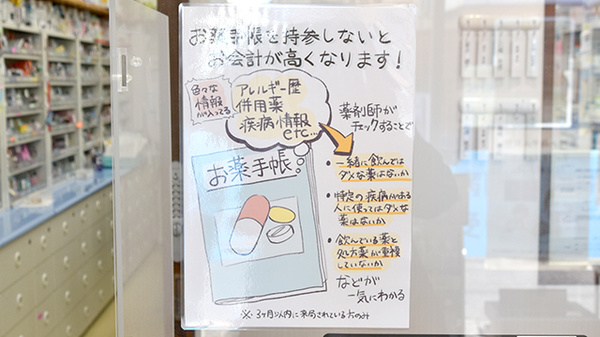 お薬手帳を持参しないと
お会計が高くなります！
色々な
情報
が入ってる
アレルギー歴
併用薬
疾病情報
etc…
お薬手帳
薬剤師が
チェックすることで
・一緒に飲んでは
ダメな薬はないか
・特定の疾病がある
人に使ってはダメな
薬はないか
・飲んでいる薬と
処方薬が重複
していないか
などが
一気にわかる
※3ヶ月以内に来局されている方のみ